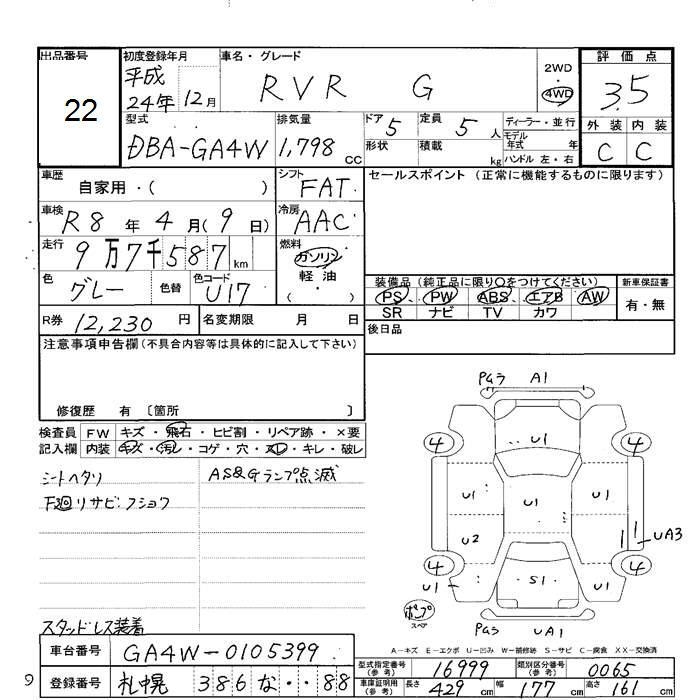 出品番号 初度登録年月 車名・グレード 評価点
22 平成24年12月 RVR G 2WD 4WD 3.5
型式 排気量 ドア 5 定員 5人 ディーラー・並行 外装 内装
DBA-GA4W 1,798cc 形状 積載 kg モデル年式 年 ハンドル 左・右 C C
車歴 自家用・( ) シフト FAT セールスポイント (正常に機能するものに限ります)
車検 R8年4月(9日) 冷房 AAC
走行 9万7千587km 燃料 ガソリン 軽油 ( )
色 グレー 色替 色コード U17 装備品 (純正品に限り○をつけてください) 新車保証書
PS PW ABS エアB AW 有・無
SR ナビ TV カワ
R券 12,230円 名変期限 月 日 後日品
注意事項申告欄 (不具合内容等は具体的に記入して下さい)
修復歴 有 〔箇所 〕
検査員記入欄 FW キズ・飛石・ヒビ割・リペア跡・×要
内装 キズ・汚レ・コゲ・穴・スレ・キレ・破レ
シートヘタリ AS&Gランプ点滅
下廻リサビ・フショク
スタッドレス装着
PGラ A1
4 U1 4
U1 U1 U1
U2 UA3
4 4
U1 S1 U1
ポンプ スペア
PGラ UA1
A―キズ E―エクボ U―凹み W―補修跡 S―サビ C―腐食 XX―交換済
車台番号 GA4W-0105399 型式指定番号(参考) 16999 類別区分番号(参考) 0065
9 登録番号 札幌 386 な ・・88 車庫証明用(参考) 長さ 429cm 幅 177cm 高さ 161cm